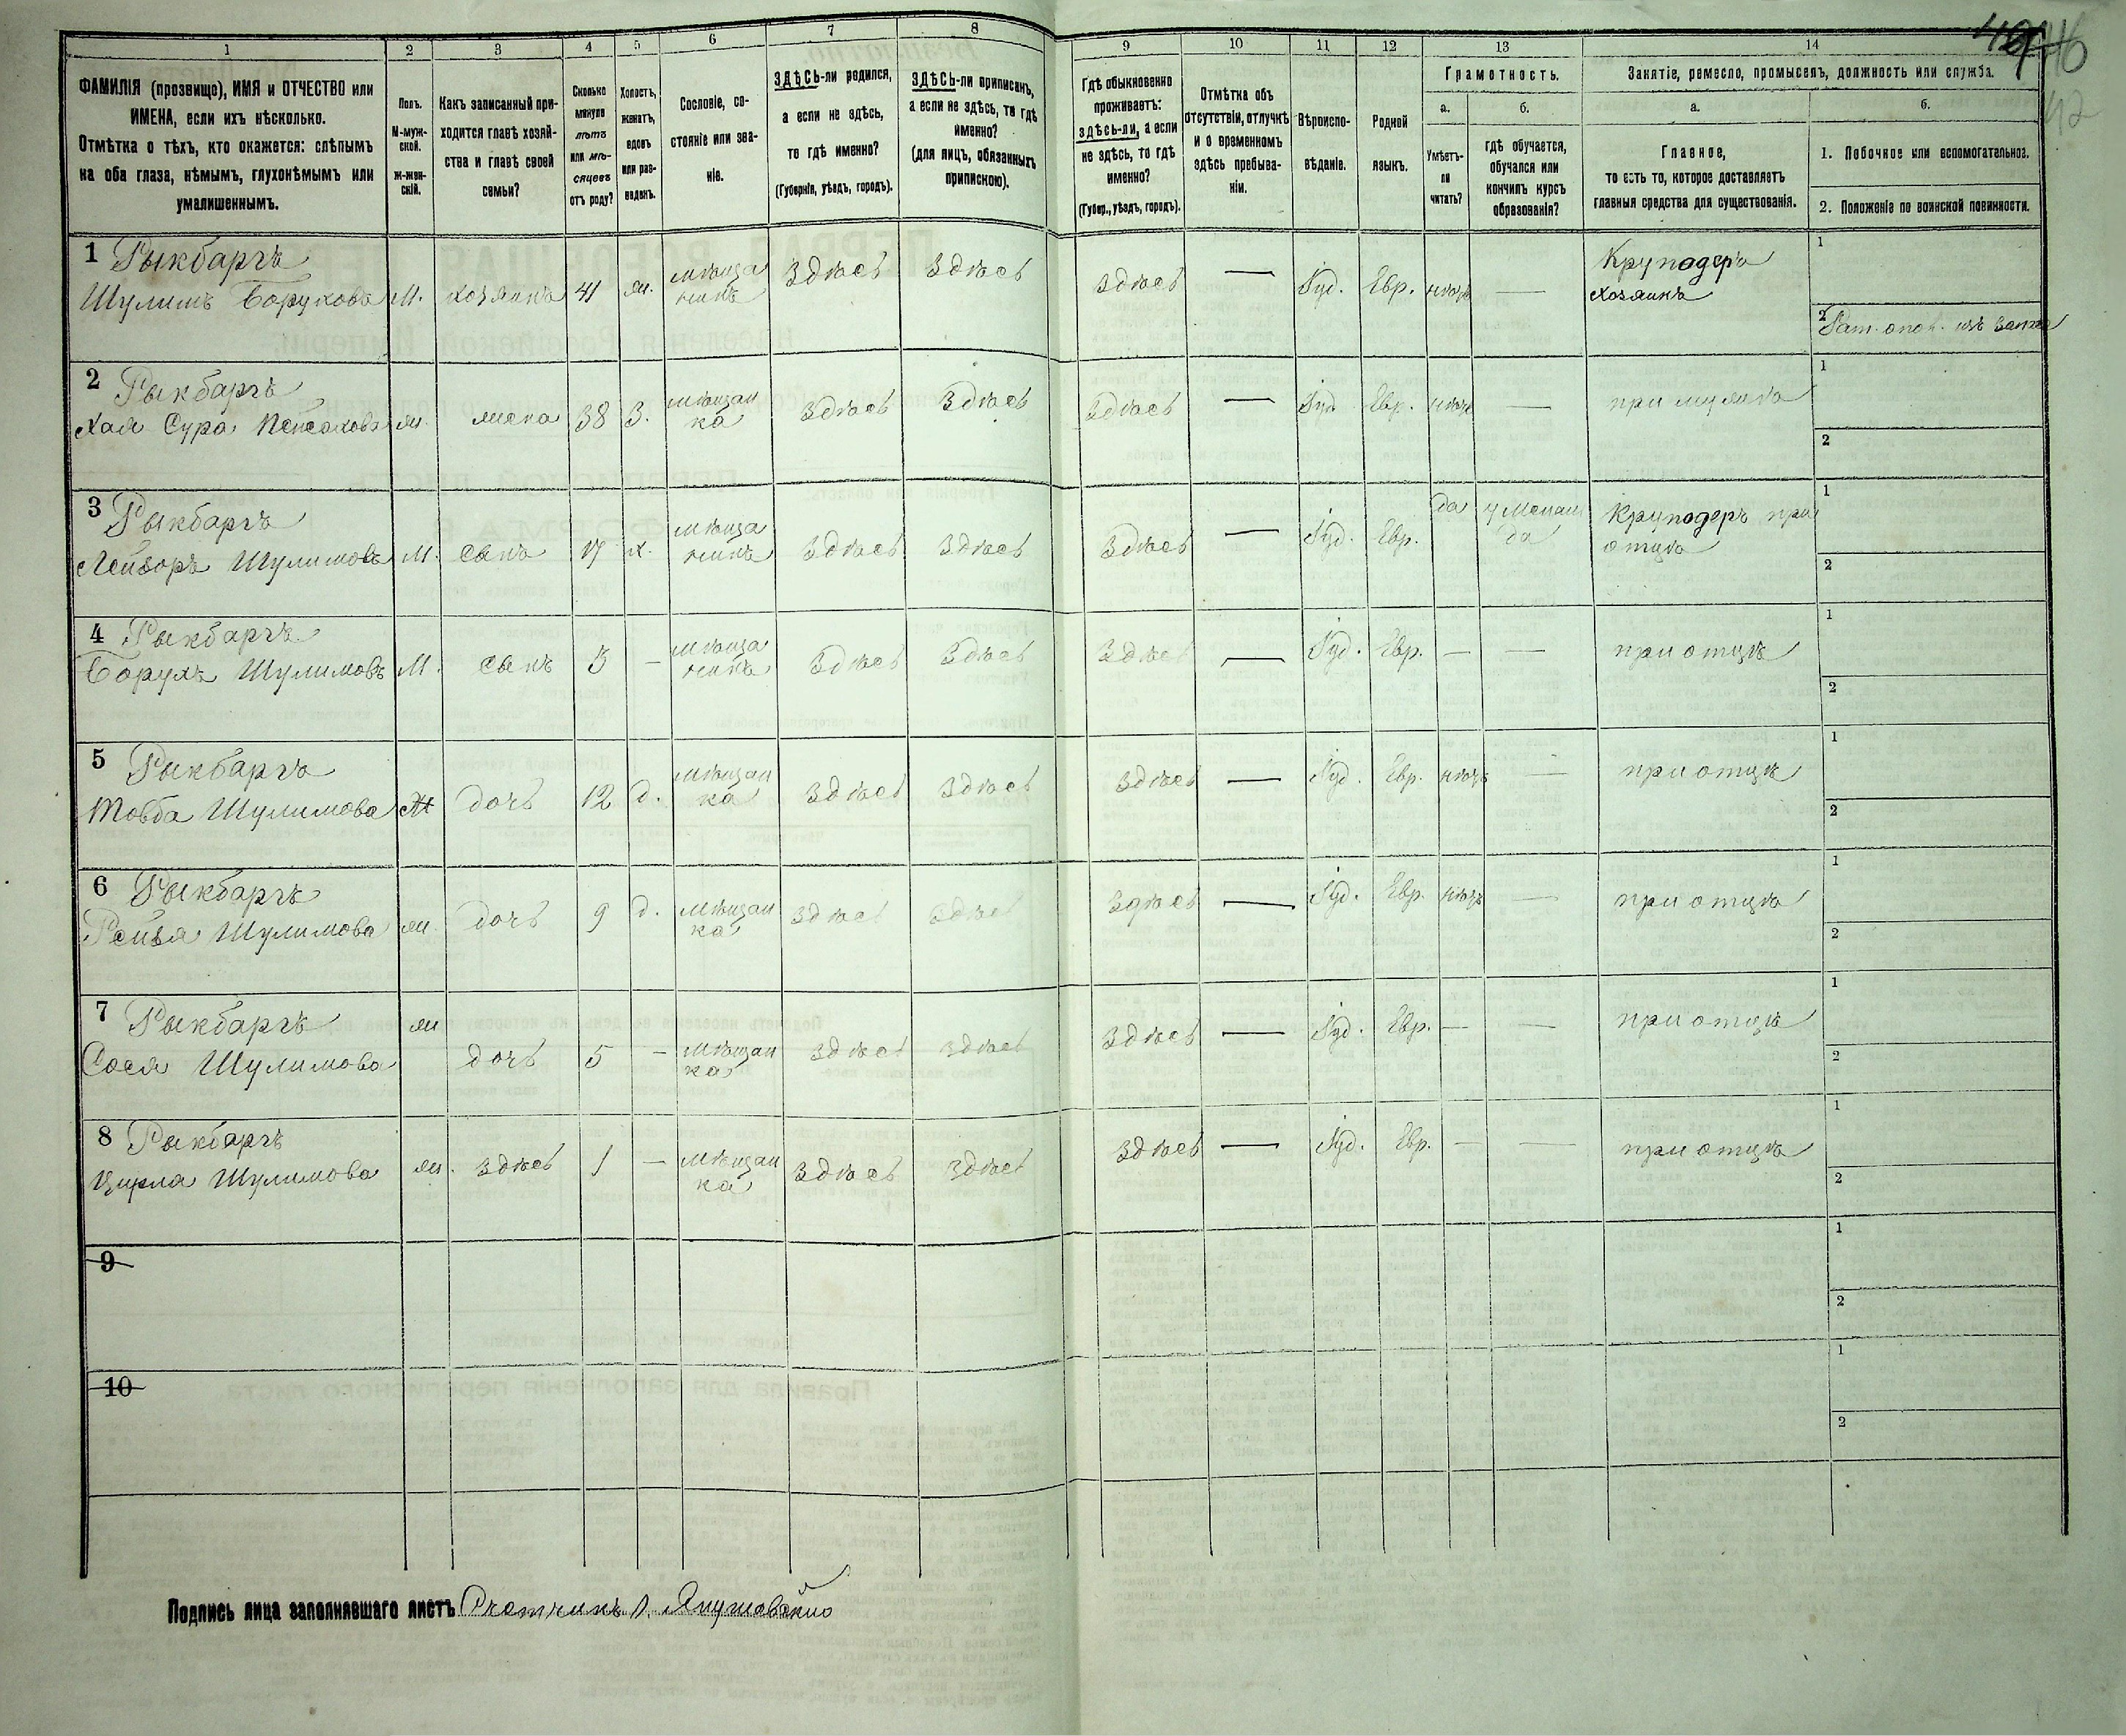 49 46
42
1 2 3 4 5 6 7 8 9 10 11 12 13 14
ФАМИЛІЯ (прозвище), ИМЯ и ОТЧЕСТВО или
ИМЕНА, если ихъ нѣсколько.
Отмѣтка о тѣхъ, кто окажется: слѣпымъ
на оба глаза, нѣмымъ, глухонѣмымъ или
умалишеннымъ.
Полъ.
М-муж-
ской.
Ж-жен-
скій.
Какъ записанный при-
ходится главѣ хозяй-
ства и главѣ своей
семьи?
Сколько
минуло
лѣтъ
или мѣ-
сяцевъ
отъ роду?
Холостъ,
женатъ,
вдовъ
или раз-
веденъ.
Сословіе, со-
стояніе или зва-
ніе.
ЗДѢСЬ-ли родился,
а если не здѣсь,
то гдѣ именно?
(Губернія, уѣздъ, городъ).
ЗДѢСЬ-ли приписанъ,
а если не здѣсь, то гдѣ
именно?
(для лицъ, обязанныхъ
припискою).
Гдѣ обыкновенно
проживаетъ:
здѣсь-ли, а если
не здѣсь, то гдѣ
именно?
(Губер., уѣздъ, городъ).
Отмѣтка объ
отсутствіи, отлучкѣ
и о временномъ
здѣсь пребыва-
ніи.
Вѣроиспо-
вѣданіе.
Родной
языкъ.
Грамотность.
а. б.
Умѣетъ-
ли
читать?
гдѣ обучается,
обучался или
кончилъ курсъ
образованія?
Занятіе, ремесло, промыселъ, должность или служба.
а. б.
Главное,
то есть то, которое доставляетъ
главныя средства для существованія.
1. Побочное или вспомогательное.
2. Положеніе по воинской повинности.
1 Рыкбаргъ
Шулимъ Боруховъ М. хозяинъ 41 ж. мѣща
нинъ Здѣсь Здѣсь Здѣсь — Іуд. Евр. нѣтъ — Круподеръ
хозяинъ
1
2 Рат. опол. изъ запаса
2 Рыкбаргъ
Хая Сура Пейсахова ж. жена 38 З. мѣщан
ка Здѣсь Здѣсь Здѣсь — Іуд. Евр. нѣтъ — при мужѣ
1
2
3 Рыкбаргъ
Лейзоръ Шулимовъ М. сынъ 17 х. мѣща
нинъ Здѣсь Здѣсь Здѣсь — Іуд. Евр. да у Мелам
да Круподеръ при
отцѣ
1
2
4 Рыкбаргъ
Борухъ Шулимовъ М. сынъ 3 — мѣща
нинъ Здѣсь Здѣсь Здѣсь — Іуд. Евр. — — при отцѣ
1
2
5 Рыкбаргъ
Товба Шулимова Ж дочь 12 д. мѣщан
ка Здѣсь Здѣсь Здѣсь — Іуд. Евр. нѣтъ — при отцѣ
1
2
6 Рыкбаргъ
Рейзя Шулимова ж. дочь 9 д. мѣщан
ка Здѣсь Здѣсь Здѣсь — Іуд. Евр. нѣтъ — при отцѣ
1
2
7 Рыкбаргъ
Сося Шулимова ж дочь 5 — мѣщан
ка Здѣсь Здѣсь Здѣсь — Іуд. Евр. — — при отцѣ
1
2
8 Рыкбаргъ
Цирла Шулимова ж. здѣсь 1 — мѣщан
ка Здѣсь Здѣсь Здѣсь — Іуд. Евр. — — при отцѣ
1
2
9
1
2
10
1
2
Подпись лица заполнявшаго листъ Счетчикъ